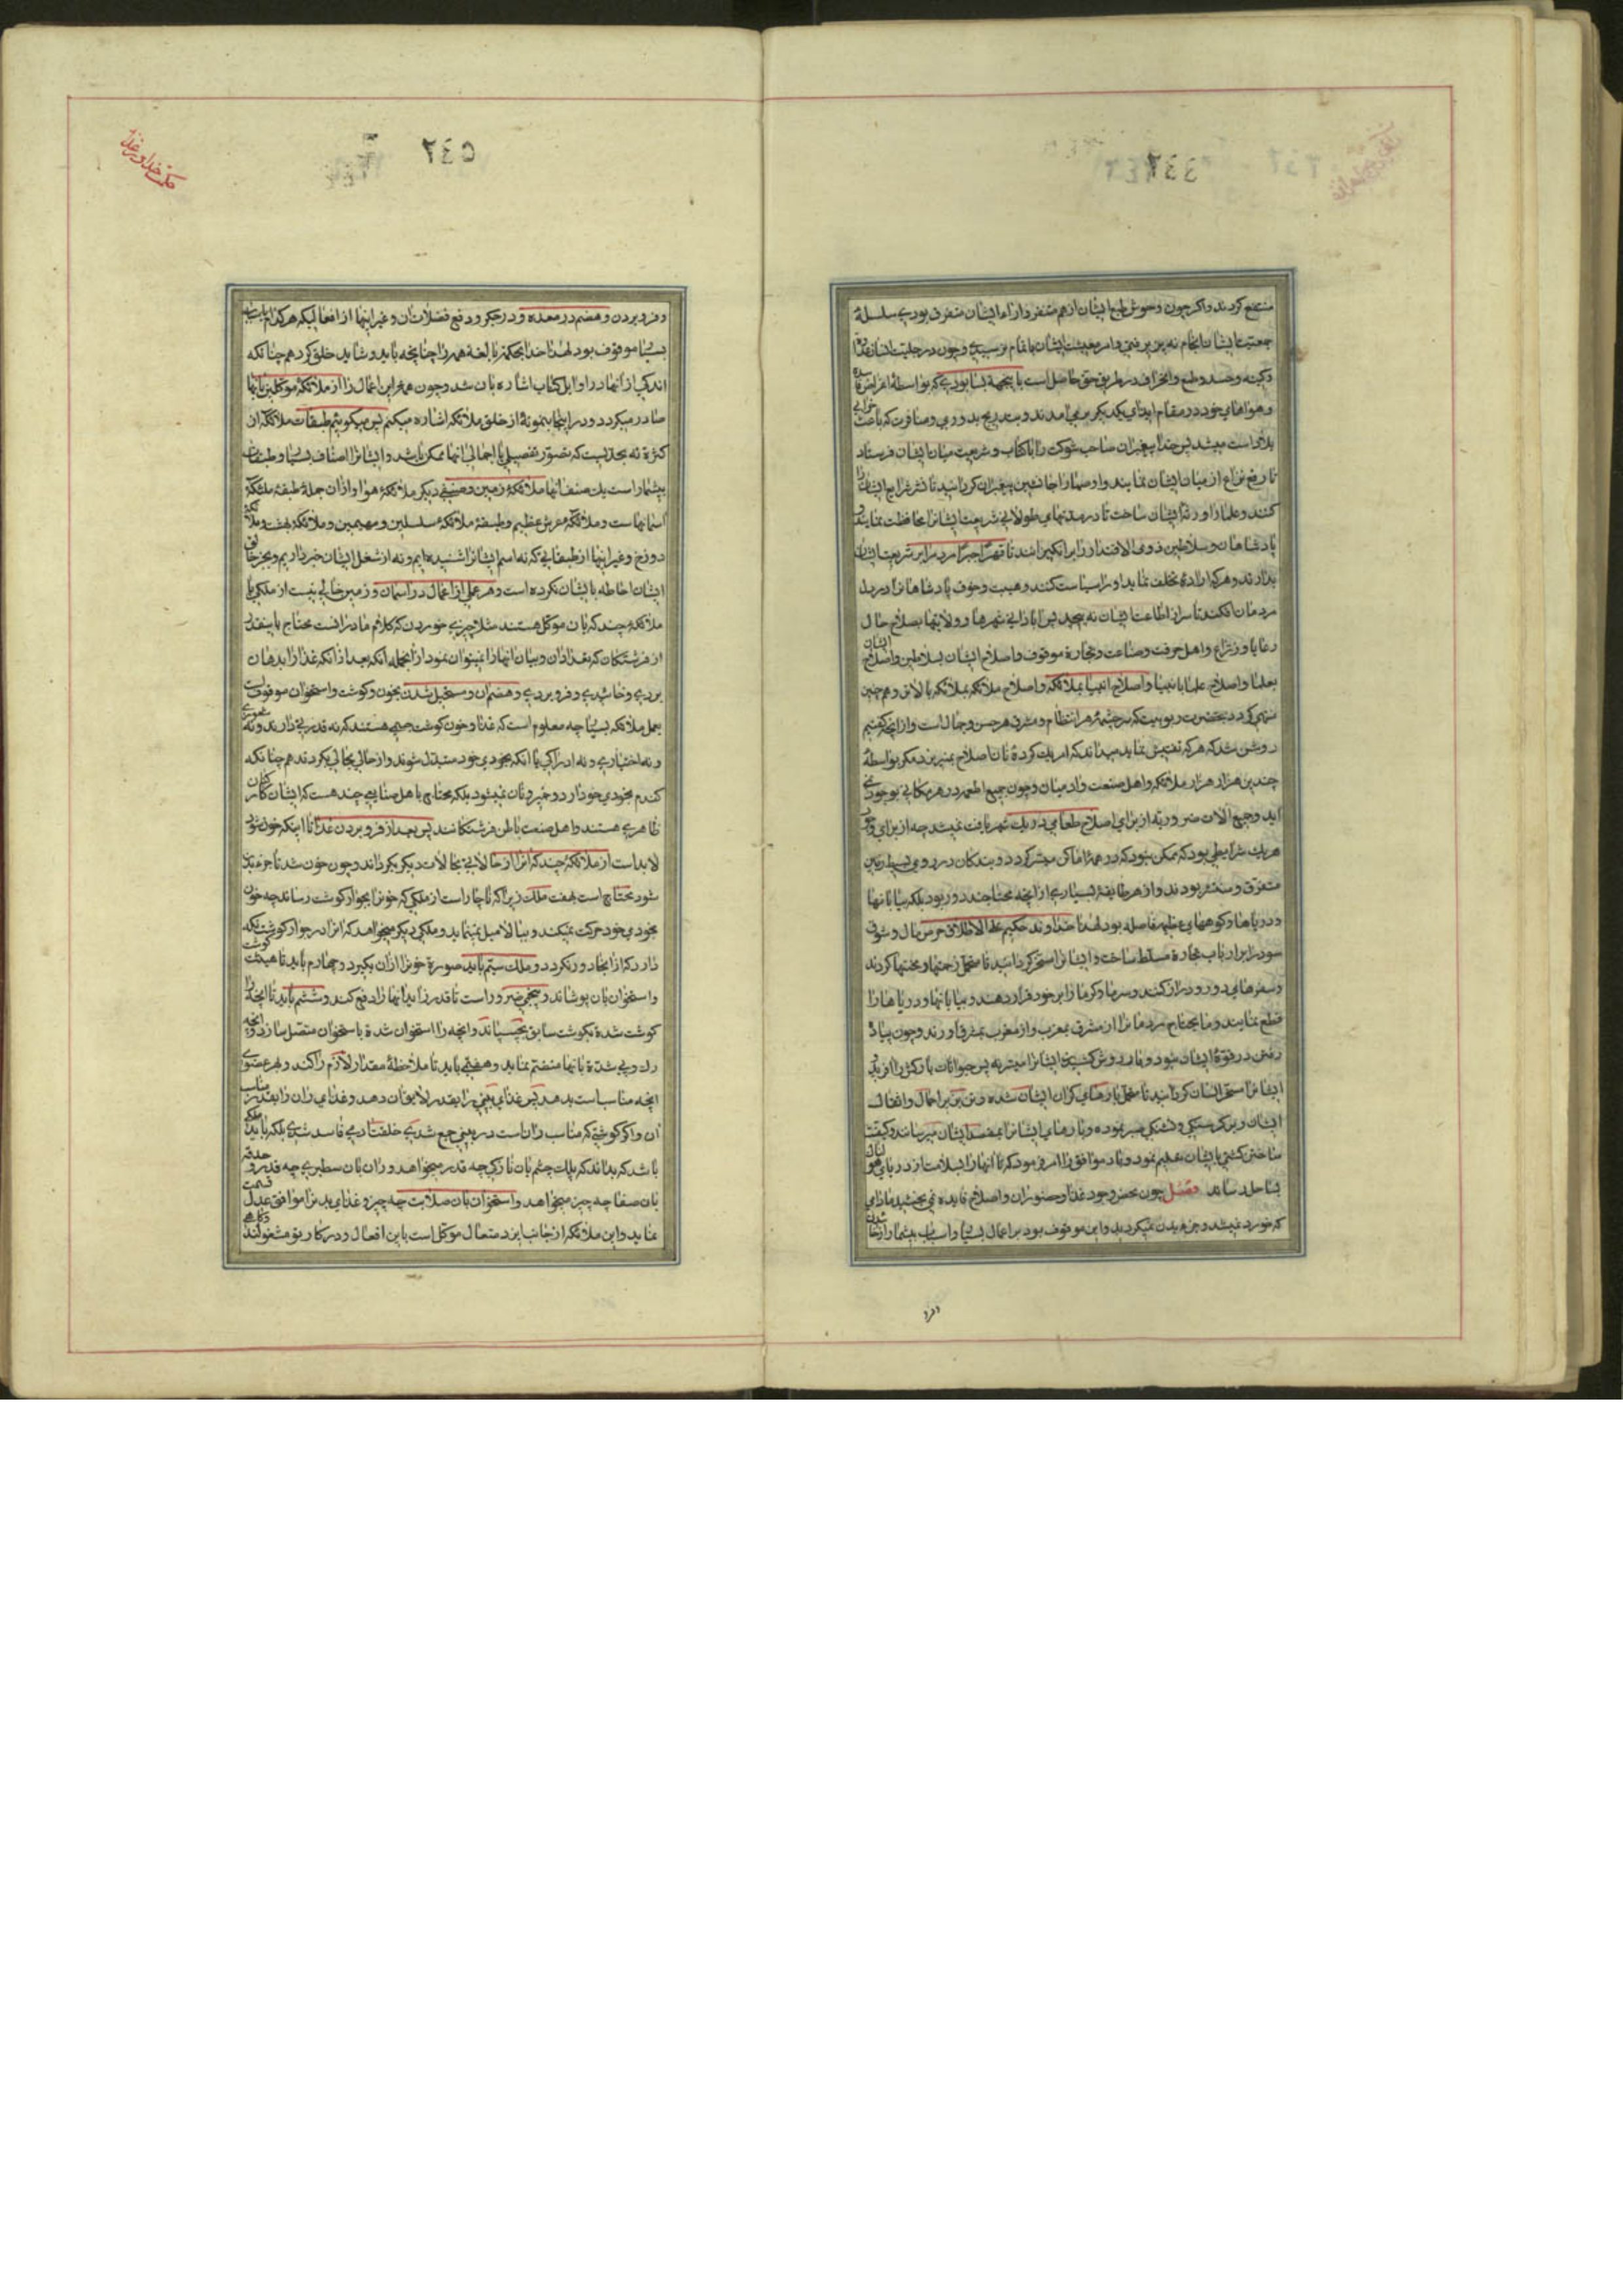 منتفع کردند واکر چون وحوش طبع ایشان از هم متنفر و اراء ایشان متفرق بودی سلسلهٔ
جمعیت ایشان انجام نه پذیرفتی وامر معیشت ایشان باتمام نرسیدی وچون در جبلیت انسان
وکینه وحسد وطمع وانحراف در طریق حق حاصل است باینجهة بسا بودی که بواسطهٔ اغراض
وهواهای خود در مقام ایذای یکدیکر برمی‌امدند وبتدریج بدوری ومنافرت که باعث خرابی
بلاد است میشد پس خدا پیغمبران صاحب شوکت را باکتاب وشریعت میان ایشان فرستاد
تا رفع نزاع از میان ایشان نمایند واوصیا را جانشین پیغمبران کردانید تا نشر شرایع ایشان را
کنند وعلما را ورثهٔ ایشان ساخت تا در مدتهای طولانی شریعت ایشانرا محافظت نمایند و
پادشاهان وسلاطین ذوی الاقتدار را برانکیزانند تا قهرًا جبرًا مردم را بر شریعت ایشان
بدارند وهرکه اراده تخلف نماید او را سیاست کنند وهیبت وخوف پادشاهانرا در دل
مردمان افکند تا سر از اطاعت ایشان نه پیچید پس آبادانی شهرها وولایتها بصلاح حال
رعایا وزراع واهل حرفت وصناعت وتجارة موقوف واصلاح ایشان بسلاطین واصلاح ایشان
بعلما واصلاح علما بانبیا واصلاح انبیا بملائکه واصلاح ملائکه بملائکه بالاتر وهمچنین
منتهی کردد بحضرت ربوبیت که سرچشمهٔ هر انتظام ومشرق هر حسن وجمال است واز انچه کفتیم
روشن شد که هرکه تفتیش نماید میداند که امر یک کردهٔ نان اصلاح نمیپذیرد مکر بواسطهٔ
چندین هزار هزار ملائکه واهل صنعت وارمیان وچون جمیع اطعمه در هر مکانی بوجود نمی
اید وجمیع الات ضروریه از برای اصلاح طعامی در یک شهر یافت نمیشد چه از برای وجود
هریک شرایطی بود که ممکن نبود که در همهٔ اماکن میسر کردد وبندکان در روی بسیط زمین
متفرق ومنتشر بودند واز هر طایفهٔ بسیاری از انچه محتاجند دور بود بلکه بیابانها
ودریاها وکوههای عظیم فاصله بود لهذا خداوند حکیم علی الاطلاق حرص مال وشوق
سود را بر ارباب تجارة مسلط ساخت وایشانرا مسخر کردانید تا متحمل زحمتها ومحنتها کردند
وسفرهای دور ودراز کنند وسرما وکرما را بر خود قرار دهند وبیابانها ودریاها را
قطع نمایند ومایحتاج مردمانرا از مشرق بمغرب واز مغرب بمشرق اورند وچون پیاده
رفتن در قوهٔ ایشان نبود وبار دوش کشیدن ایشانرا میسر نه پس حیوانات بارکش را افرید و
ایشانرا مسخر انسان کردانید تا متحمل بارهای کران ایشان شده وتن بزیر احمال واثقال
ایشان وبر کرسنکی وتشنکی صبر نموده وبارهای ایشانرا بمقصد ایشان میرسانند وکیفیت
ساختن کشتی بایشان تعلیم نمود وباد موافق را امر فرمود که تا انها را بسلامت از دریای
بساحل رساند فصل چون محض وجود غذا وحضور ان واصلاح فایده نمی بخشید مادامی
که خورد نمیشد وجزء بدن نمیکردید واین موقوف بود بر اعمال بسیار واسباب بیشمار از خائیدن
وفرو
٥٤٢
وفرو بردن وهضم در معده ودر جکر ودفع فضلات ان وغیر اینها از افعالیکه هر کدام باسباب
بسیار موقوف بود لهذا خدا بحکمة بالغهٔ همه را چنانچه باید وشاید خلق کرد همچنانکه
اندکی از انها در اوایل کتاب اشاره بان شد وچون همهٔ این اعمال را از ملائکهٔ موکلین بانها
صادر میکردد ودر اینجا بنمونهٔ از خلق ملائکه اشاره میکنم پس میکوییم طبقات ملائکه از
کثرة نه بحدیست که تصور تفصیلی یا اجمالی انها ممکن باشد وایشانرا اصناف بسیار وطبقات
بیشمار است یک صنف انها ملائکهٔ زمین وصنفی دیکر ملائکهٔ هوا واز ان جمله طبقهٔ ملائکهٔ
آسمانهاست وملائکهٔ عرش عظیم وطبقهٔ ملائکهٔ مسلسلین ومهیمین وملائکهٔ بهشت وملائکهٔ
دوزخ وغیر اینها از طبقاتی که نه اسم ایشانرا شنیده ایم ونه از شغل ایشان خبر داریم وبجز خالق
ایشان احاطه بایشان نکرده است وهر عملی از اعمال در اسمان وزمین خالی نیست از ملکی یا
ملائکهٔ چند که بان موکل هستند مثلا چیزی خوردن که کلام ما در انست محتاج باینقدر
از فرشتکان که تعداد ان وبیان انها را نمیتوان نمود از انجمله انکه بعد از انکه غذا را بدهان
بردی وخائیدی وفرو بردی وهضم ان ومستحیل شدن بخون وکوشت واستخوان موقوفست
بعمل ملائکه بسیار چه معلوم است که غذا وخون کوشت جسمی هستند که نه قدرتی دارند ونه شعوری
ونه اختیاری ونه ادراکی تا انکه بخودی خود متبدل شوند واز حالی بحالی بکردند همچنانکه
کندم بخودی خود ارد وخمیر ونان نمیشود بلکه محتاج باهل صنایعی چند هست که ایشان کارکنان
ظاهری هستند واهل صنعت باطن فرشتکانند پس بعد از فرو بردن غذا تا اینکه خون شود
لابد است از ملائکهٔ چند که انرا از حالاتی بحالات دیکر بکرداند وچون خون شد تا جزء بدن
شود محتاج است بهفت ملک زیرا که ناچار است از ملکی که خونرا بجوار کوشت رساند چه خون
بخودی خود حرکت نمیکند وبیالا میل نمینماید وملکی دیکر میخواهد که انرا در جوار کوشت نکه
دارد که از انجا دور نکردد وملک سیم باید صورة خونرا از ان بکیرد وچهارم باید تا هیئت کوشت
واستخوان بان پوشاند وپنجمی ضرور است تا قدر زاید انها را دفع کند وششم باید تا انچه را
کوشت شده بکوشت سابق بچسپاند وانچه را استخوان شده باستخوان متصل سازد وانچه
رک وپی شده بانها منضم نماید وهفتمی باید تا ملاحظهٔ مقدار لازم را کند وبهر عضوی
انچه مناسب است بدهد پس غذای بینی را بقدر لایق ان دهد وغذای ران را بقدر مناسب
ان واکر کوشتی که مناسب ران است در بینی جمع شدی خلقت ادمی فاسد شدی بلکه باید ملکی
باشد که بداند که پلک چشم بان نازکی چه قدر میخواهد وران بان سطبری چه قدر وحدقه
بان صفا چه چیز میخواهد واستخوان بان صلابت چه چیز وغذای بدن را موافق عدل قسمت
نماید واین ملائکه از جانب ایزد متعال موکل است باین افعال ودر کار تو مشغولند